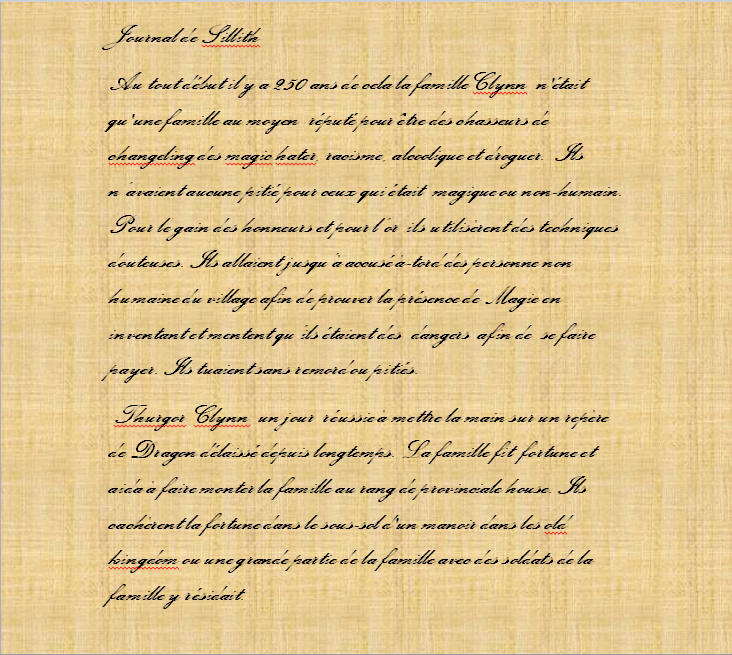 Journal de Sillith
Au tout début il y a 250 ans de cela la famille Clynn n'était
qu'une famille au moyen réputé pour être des chasseurs de
changeling des magic hater, racisme, alcoolique et droguer. Ils
n'avaient aucune pitié pour ceux qui était magique ou non-humain.
Pour le gain des honneurs et pour l'or ils utilisèrent des techniques
douteuses. Ils allaient jusqu'à accusé à-tord des personne non
humaine du village afin de prouver la présence de Magie en
inventant et mentent qu'ils étaient des dangers afin de se faire
payer. Ils tuaient sans remord ou pitiés.
Thurgor Clynn un jour réussie à mettre la main sur un repère
de Dragon délaissé depuis longtemps. La famille fit fortune et
aida à faire monter la famille au rang de provinciale house. Ils
cachèrent la fortune dans le sous-sol d'un manoir dans les old
kingdom ou une grande partie de la famille avec des soldats de la
famille y résidait.